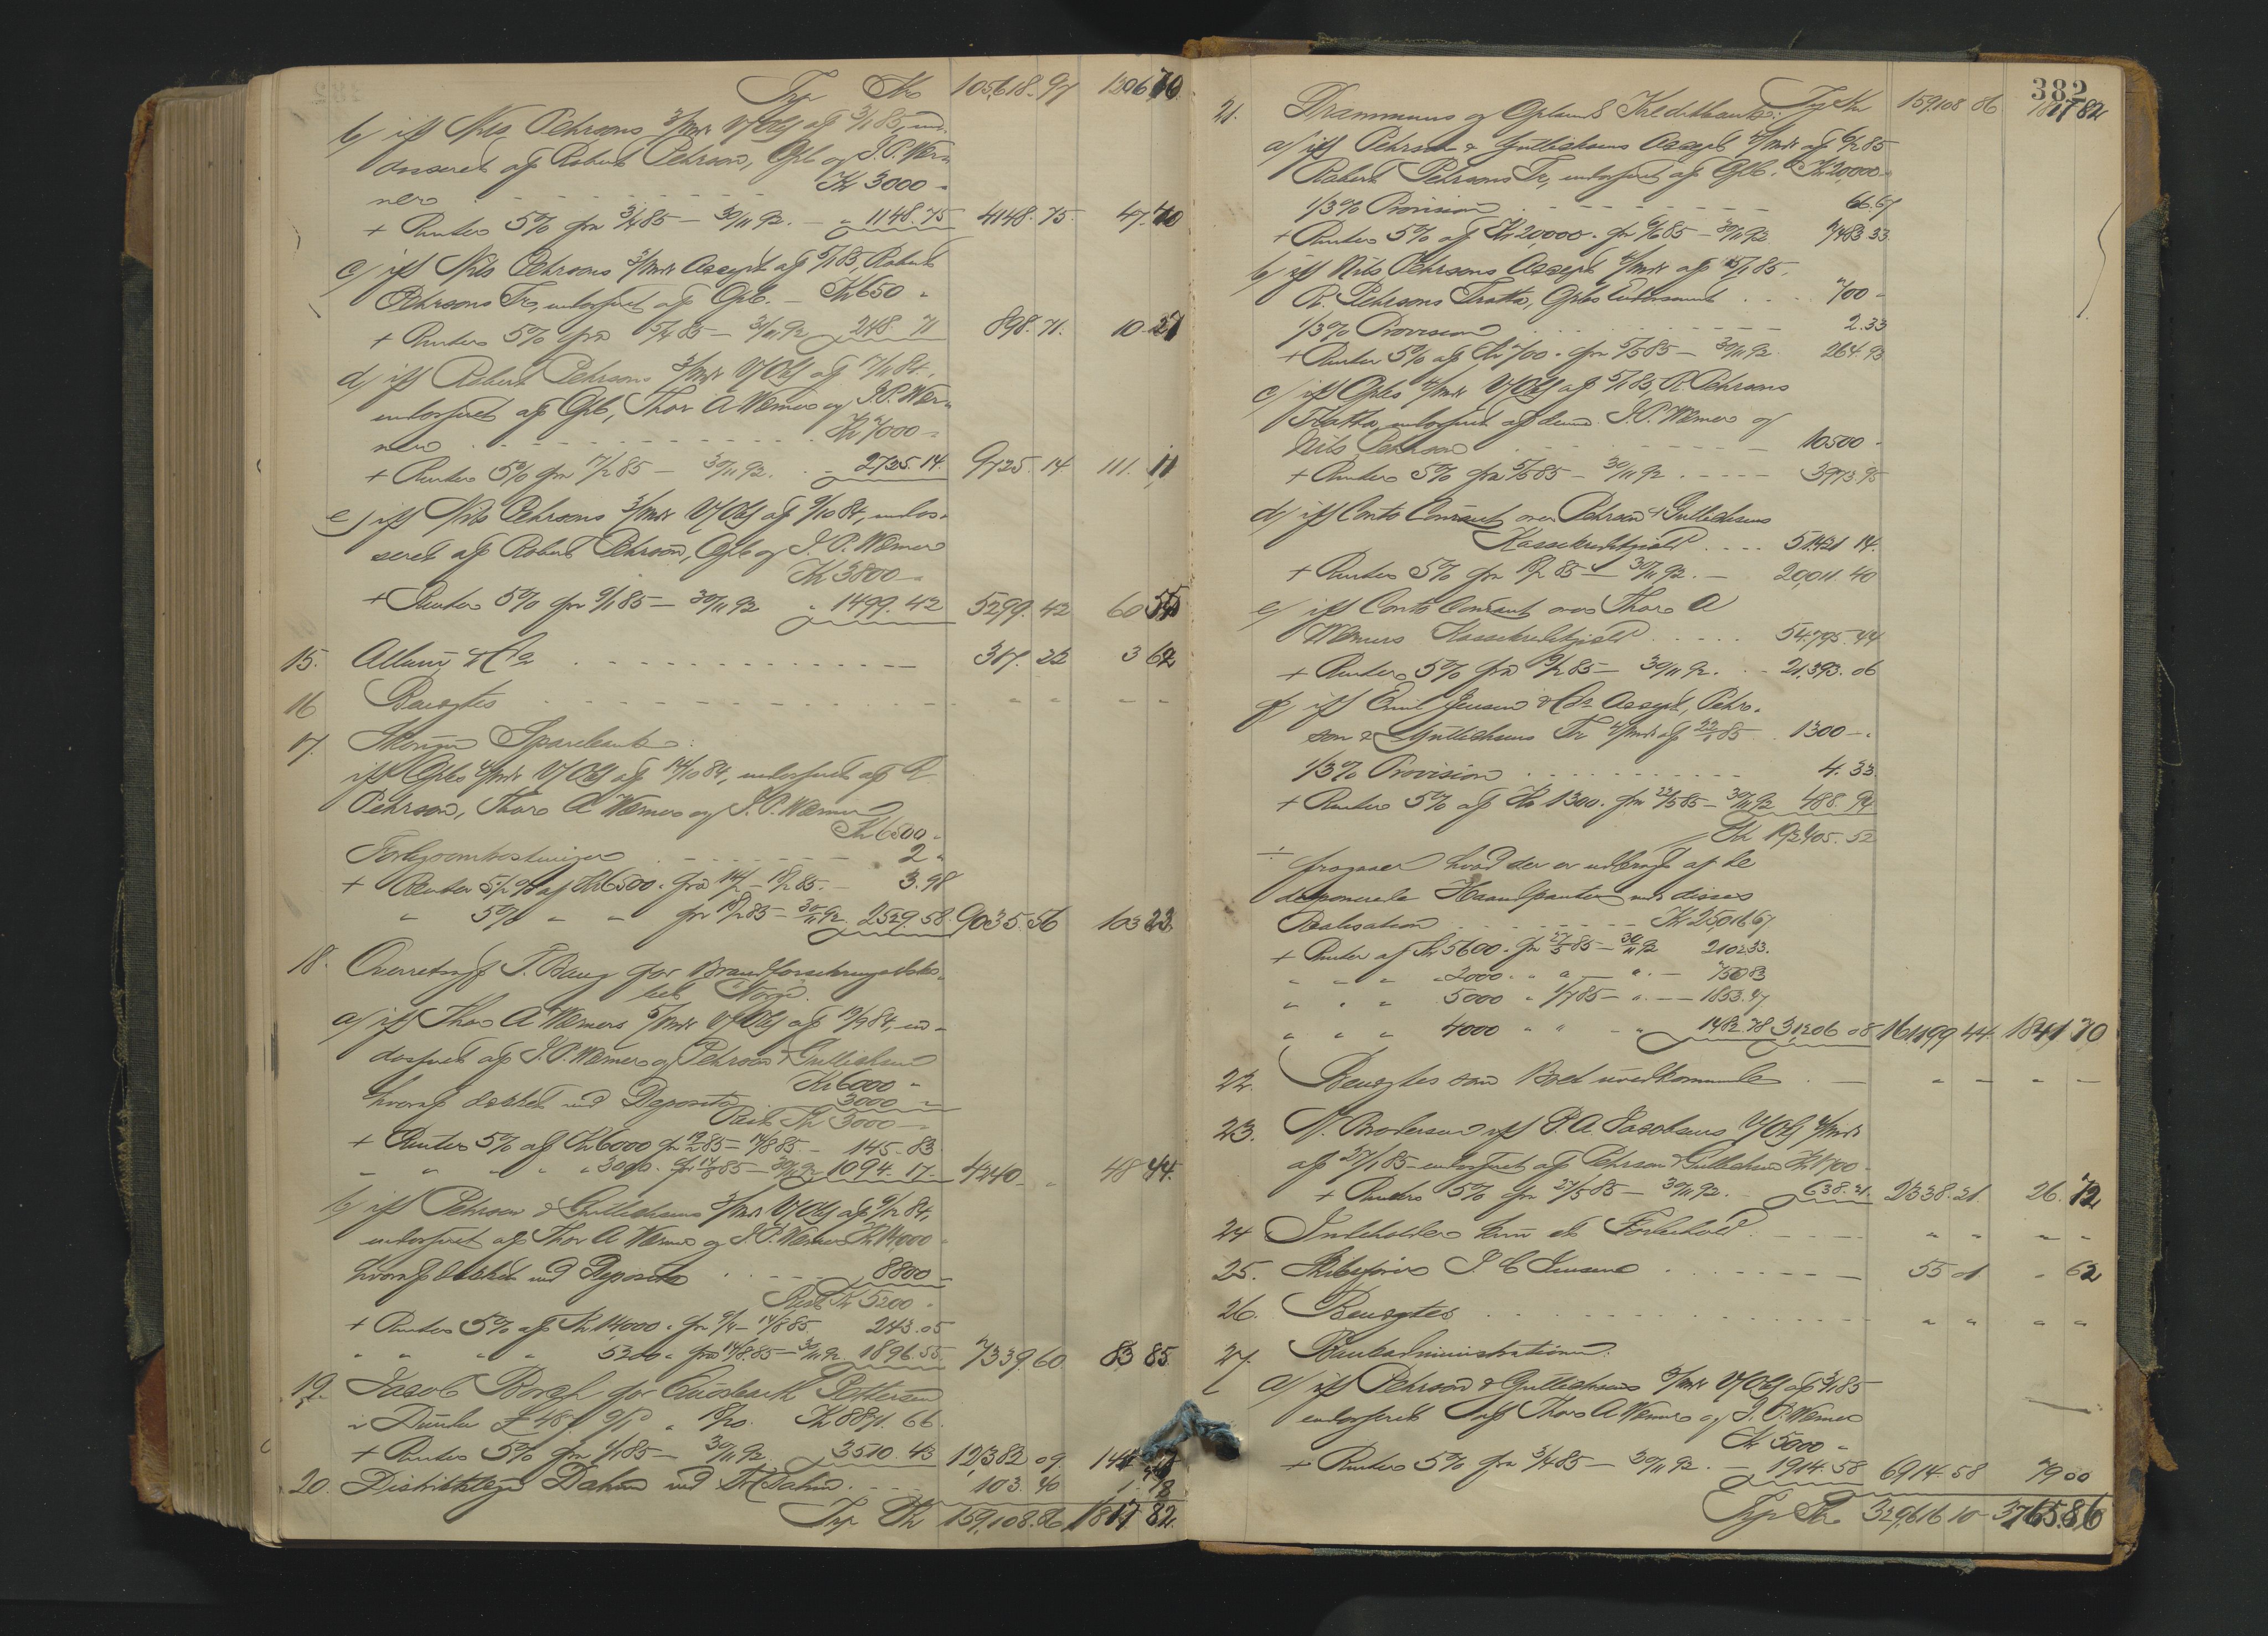 Trp Kr 105,618.97 1206 70
b) iflg Nils Pehrsons 3/mdr V/Obl af 3/1 85, en-
dosseret af Robert Pehrson, Gplb og J. P. Wer-
ner Kr 3000 -
+ Renter 5% fra 3/4 85 - 30/11 92. - " 1148.75 4148.75. 47.40
c) iflg Nils Pehrsons 3/mdr Accept af 5/1 85, Robert
Pehrsons Tr, endosseret af Gplb. - Kr 650 "
+ Renter 5% fra 5/4 85 - 30/11 92 248 71 898.71. 10.27
d) iflg Robert Pehrsons 3/mdr V/Obl af 17/11 84,
endosseret af Gplb, Thor A Werner og J. P. Wer-
ner Kr 7000 -
+ Renter 5% fra 17/2 85 - 30/11 92. 2725.14. 9725.14 111.11
e) iflg Nils Pehrsons 3/mdr V/Obl af 9/10 84, endos-
seret af Robert Pehrson, Gplb og J. P. Werner
Kr 3800 -
+ Renter 5% fra 9/1 85 - 30/11 92 " 1499.42 5299.42 60 55
15. Allum & Co 317.22 3 62
16 Benægtes - - - -
17. Skoger Sparebank:
iflg Gplbs 4/mdr V/Obl af 14/10 84, endosseret af R
Pehrson, Thor A Werner og J. P. Werner
Kr 6500 -
Forligsomkostninger 2 "
+ Renter 5½% af Kr 6500. fra 14/2 - 18/2 85. - 3.98
" 5% - - fra 18/2 85 - 30/11 92. 2529.58. 9035.56 103 22
18. Overretssagf T. Baug for Brandforsikringsselska-
bet Norge.
a) iflg Thor A Werners 5/mdr V/Obl af 19/9 84, en-
dosseret af J. P. Werner og Pehrson & Gullichsen
Kr 6000 "
hvoraf dækket ved Deposito 3000 -
Rest Kr 3000 -
+ Renter 5% af Kr 6000 fra 19/2 85 - 14/8 85. - 145.83
" " " " 3000. fra 14/8 85 - 30/11 92 1094.17 - 4240 - " 48 44.
b) iflg Pehrson & Gullichsens 4/mdr V/Obl af 9/12 84,
endosseret af Thor A Werner og J. P. Werner Kr 14,000 -
hvoraf dækket ved Deposito 8800 -
Rest Kr 5200 -
+ Renter 5% af Kr 14,000. fra 9/4 - 14/8 85. 243.05
" " " " 5200 " fra 14/8 85 - 30/11 92. 1896.55. 7339.60 83 85.
19. Jacob Borch for Pettersen
i £ 487. 9/10 " 18/20. Kr 8871.66.
+ Renter 5% fra 1/1 85 - 30/11 92 3510.43 12,382 09. 141
20. Distriktslæge Dahm ved Dahm. 103.40 1.18
Trp Kr 159,108.86 1817 82
382
Trp Kr 159,108 86 1817 82
21. Drammens og Oplands Kreditbank:
a) iflg Pehrson & Gullichsens Accept 4/mdr af 6/2 85
Robert Pehrsons Tr, endosseret af Gplb. Kr 20,000 -
1/3% Provision 66.67
+ Renter 5% af Kr 20,000. fra 6/6 85 - 30/11 92 7483 33.
b) iflg Nils Pehrsons Accept 4/mdr af 5/1 85.
R. Pehrsons Tratta, Gplbs Endossement 700 -
1/3% Provision 2.33
+ Renter 5% af Kr 700. fra 5/5 85 - 30/11 92. 264.93
c) iflg Gplbs 4/mdr V/Obl af 5/1 85, R. Pehrsons
Tratta, endosseret af denne J. P. Werner og
Nils Pehrson 10500 -
+ Renter 5% fra 5/5 85 - 30/11 92. 3973.95
d) iflg Conto Courant over Pehrson & Gullichsens
Kassekreditgjæld 51,421 14.
+ Renter 5% fra 18/2 85 - 30/11 92. - 20,011.40
e) iflg Conto Courant over Thor A
Werners Kassekreditgjæld 54,795.44
+ Renter 5% fra 9/2 85 - 30/11 92. 21,393.06
f) iflg Emil Jensen & Co Accept, Pehr-
son & Gullichsens Tr 4/mdr af 22/1 85 1300 -
1/3% Provision 4.33
+ Renter 5% af Kr 1300. fra 22/5 85 - 30/11 92 488.94
Kr 192,405.52
÷ fragaaer hvad der er udbragt af de
deponerede Haandpanter ved disses
Realisation Kr 25,011.67
+ Renter af Kr 5600. fra 27/5 85 - 30/11 92 2102 33.
- - - 2000. " " - ". - 750 83
" " " 5000 " 1/7 85 - ". - 1853.47
" " " 4000 " " - " 1482.78 31,206 08 161,199 44. 1841 70
22. Benægtes som Boet uvedkommende - - - -
23. N. Brodersen iflg P. A. Jacobsens V/Obl 4/mdr
af 27/1 85 - endosseret af Pehrson & Gullichsen Kr 1700 -
+ Renter 5% fra 27/5 85 - 30/11 92. 638.21. 2338.21 26.72
24 Indeholder kun et Forbehold. " " " "
25. Skibsfører J. C. Jensen 55 01 " 62
26. Benægtes " " " "
27. Bankadministrationen:
a) iflg Pehrson & Gullichsens 3/mdr V/Obl af 3/1 85
endosseret af Thor A Werner og J. P. Werner
Kr 5000 -
+ Renter 5% fra 3/4 85 - 30/11 92. - 1914.58 6914.58 79 00
Trp Kr 329,616 10 - 3765.86